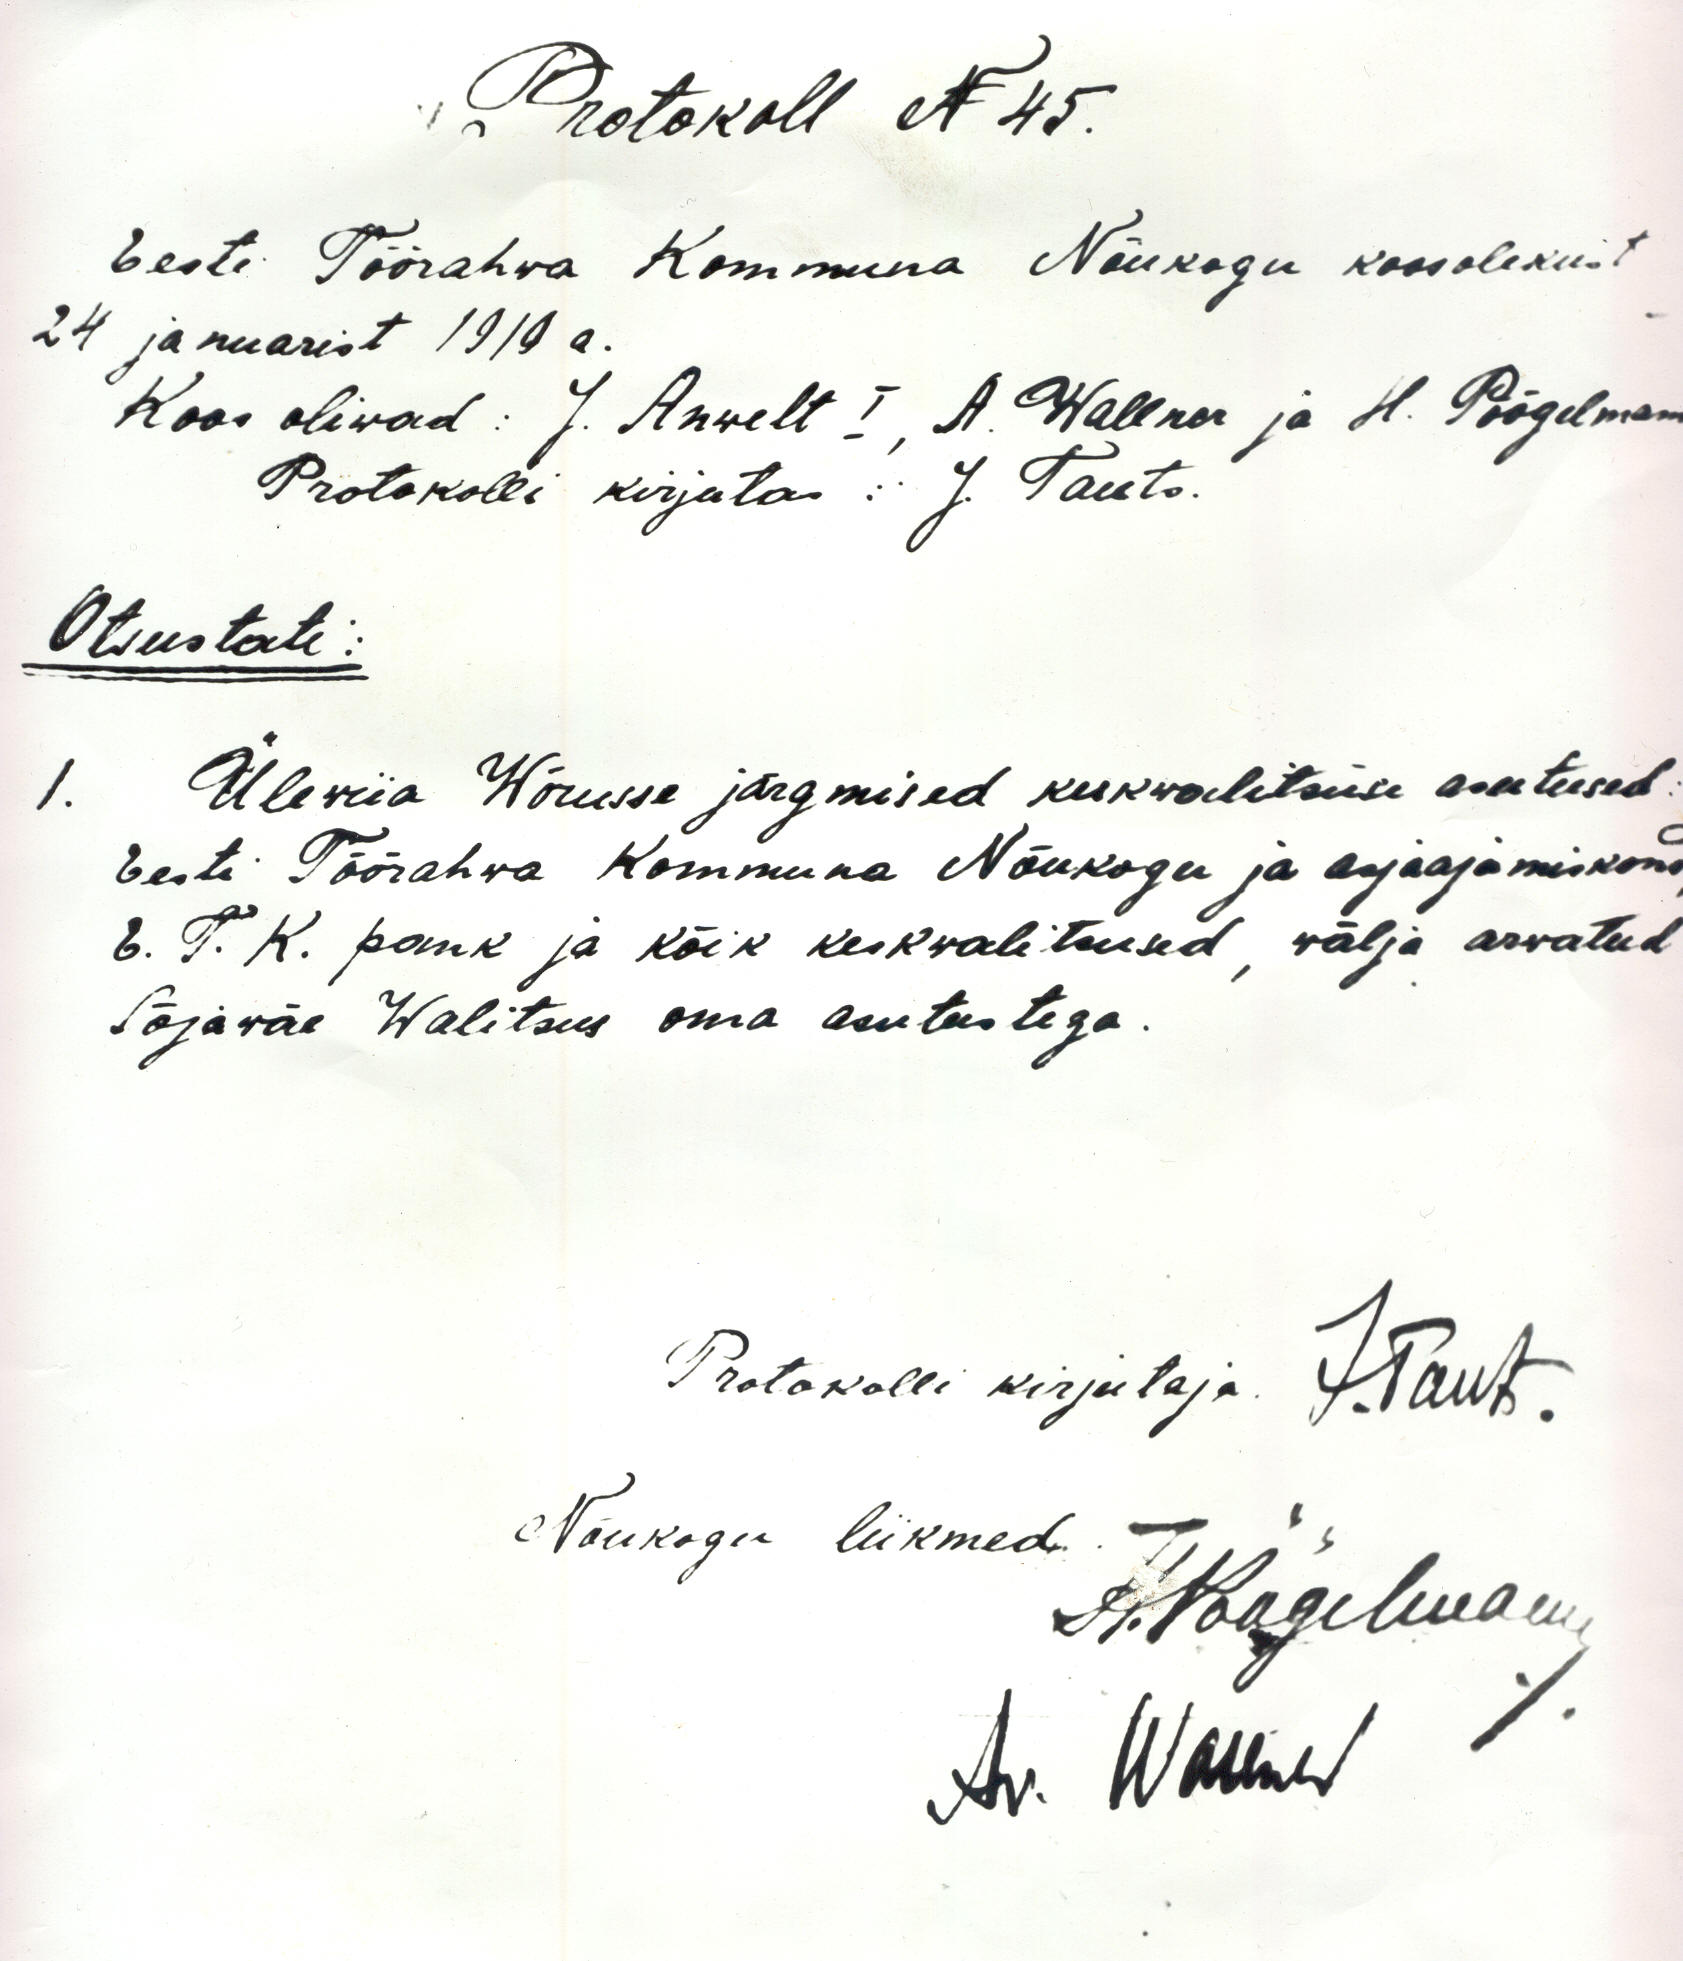 Protokoll № 45.
Eesti Töörahwa Kommuna Nõukogu koosolekust
24 januarist 1919 a.
Koos oliwad: J. Anwelt I, A. Wallner ja H. Pöögelmann
Protokolli kirjutas: J. Tauts.
Otsustati:
1. Ülewiia Wõrusse järgmised keskwalitsuse asutused:
Eesti Töörahwa Kommuna Nõukogu ja asjaajamiskond,
E. T. K. pank ja kõik keskwalitsused, wälja arwatud
Sõjawäe Walitsus oma asutustega.
Protokolli kirjutaja. J. Tauts.
Nõukogu liikmed.
H. Pöögelmann.
Ar. Wallner